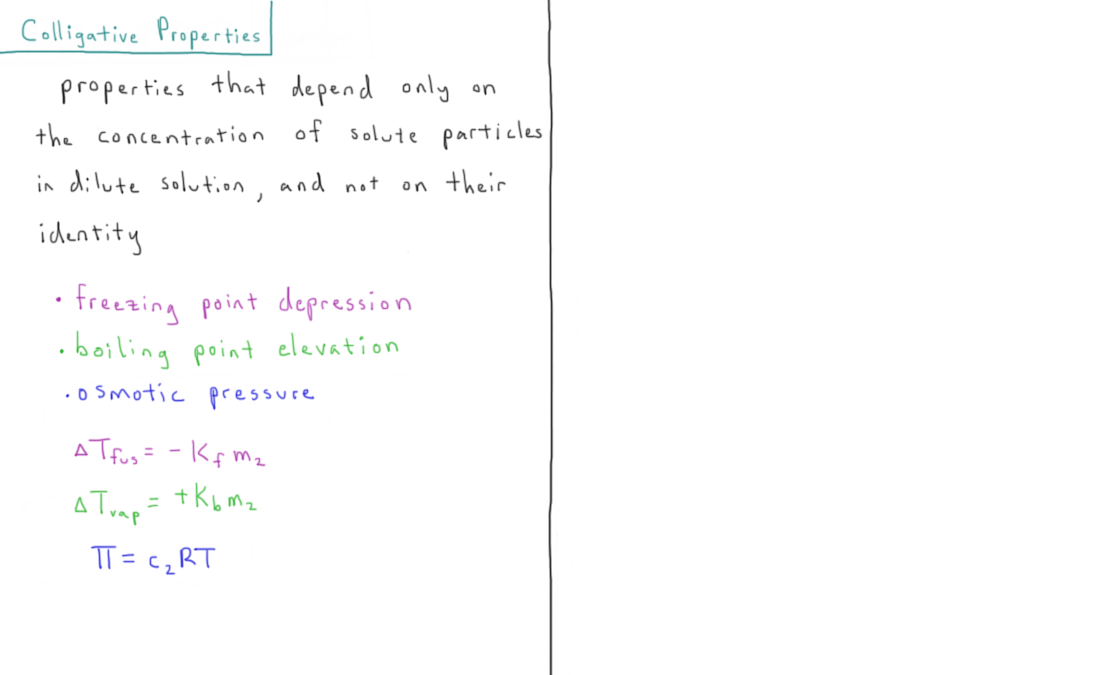 Colligative Properties
properties that depend only on
the concentration of solute particles
in dilute solution, and not on their
identity
• freezing point depression
• boiling point elevation
• osmotic pressure
ΔT_fus = - K_f m_2
ΔT_vap = + K_b m_2
Π = c_2 RT